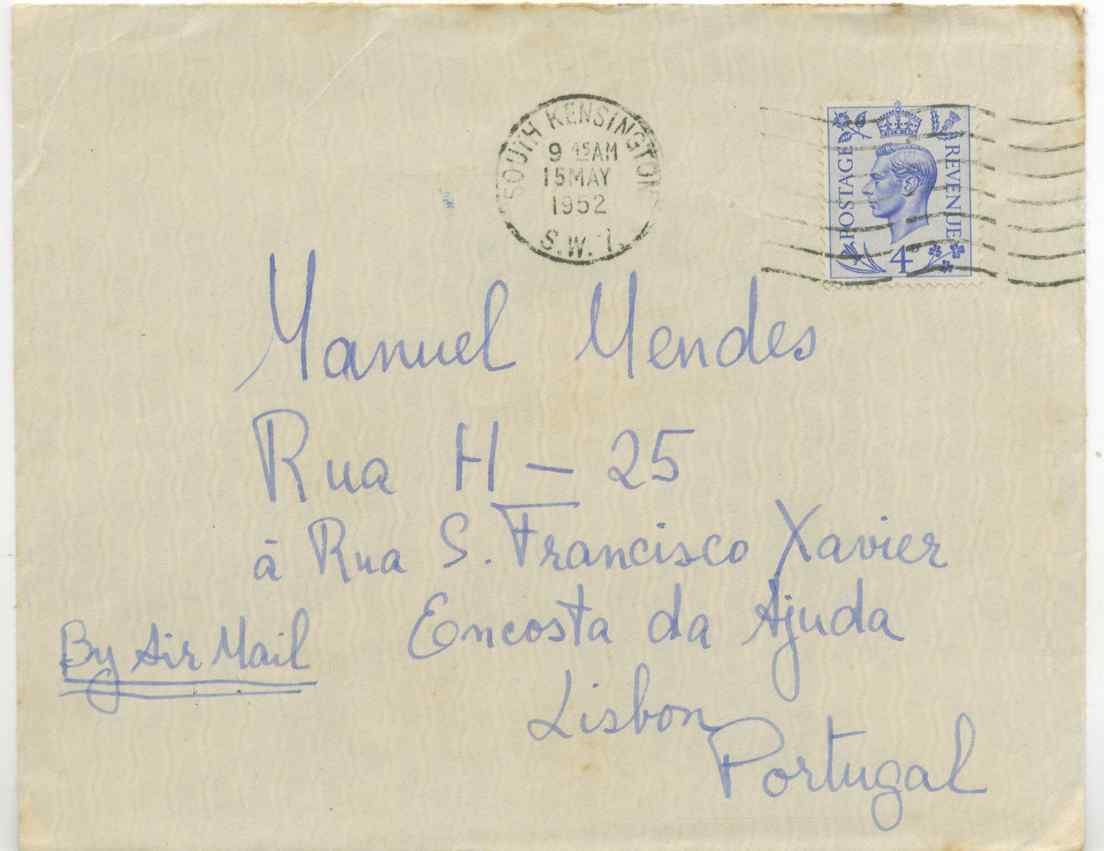 SOUTH KENSINGTON
9 45AM
15 MAY
1952
S.W.7.
POSTAGE
REVENUE
4D
Manuel Mendes
Rua H — 25
à Rua S. Francisco Xavier
Encosta da Ajuda
By Air Mail
Lisbon
Portugal